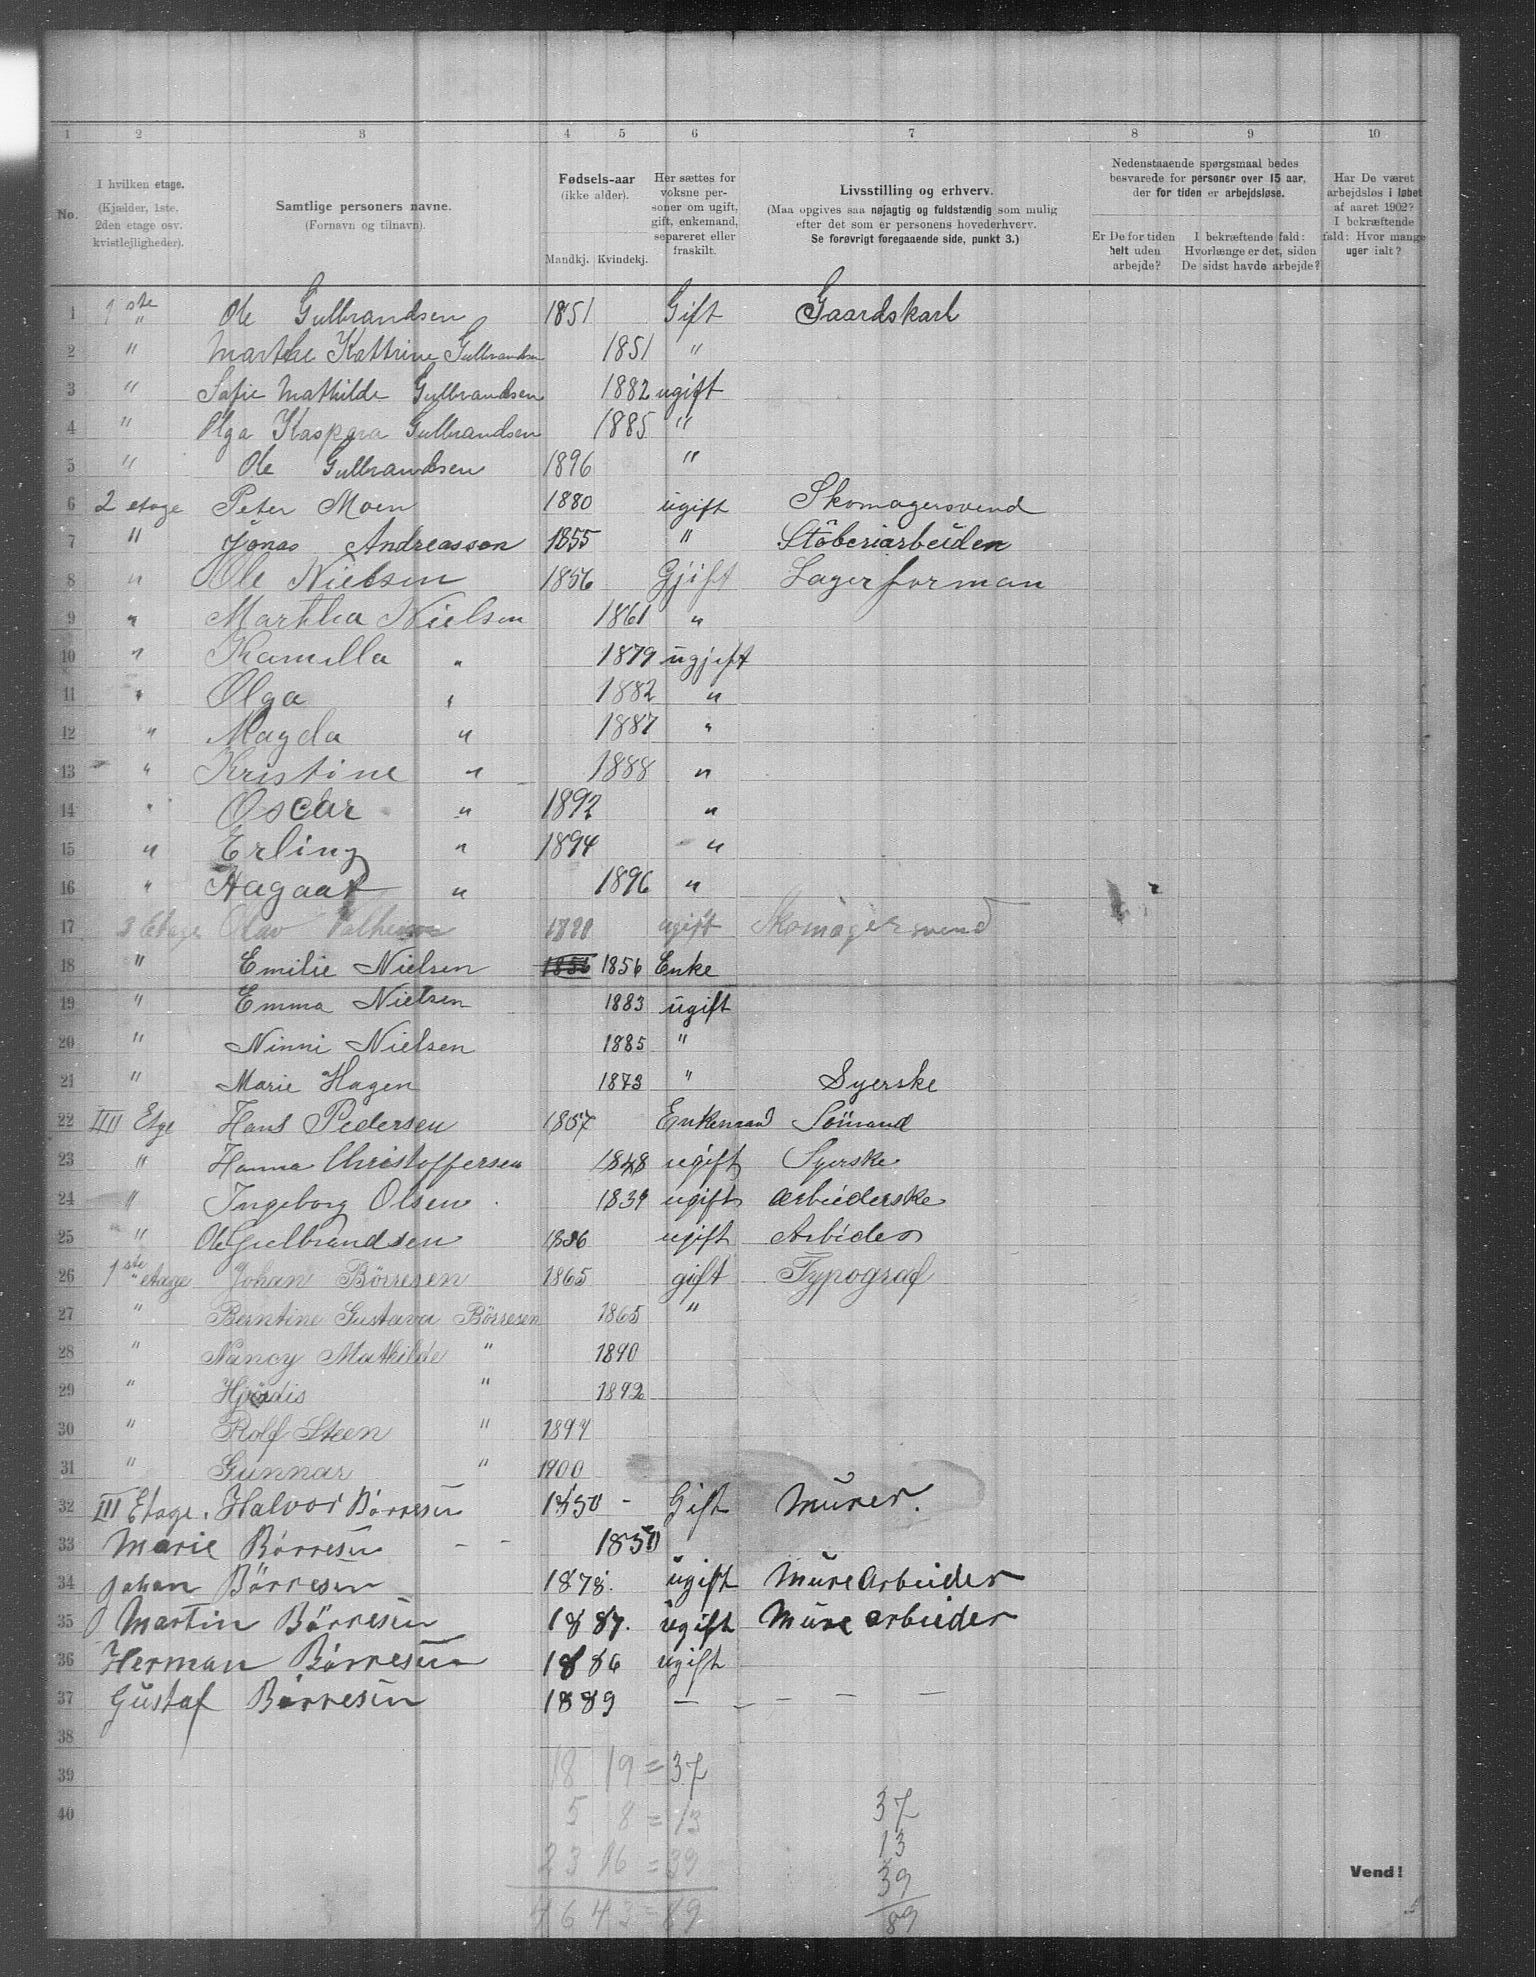 1 2 3 4 5 6 7 8 9 10
No.
I hvilken etage.
(Kjælder, 1ste.
2den etage osv.
kvistlejligheder).
Samtlige personers navne.
(Fornavn og tilnavn).
Fødsels-aar
(ikke alder).
Mandkj. Kvindekj.
Her sættes for
voksne per-
soner om ugift,
gift, enkemand,
separeret eller
fraskilt.
Livsstilling og erhverv.
(Maa opgives saa nøjagtig og fuldstændig som mulig
efter det som er personens hovederhverv.
Se forøvrigt foregaaende side, punkt 3.)
Nedenstaaende spørgsmaal bedes
besvarede for personer over 15 aar,
der for tiden er arbejdsløse.
Er De for tiden
helt uden
arbejde?
I bekræftende fald:
Hvorlænge er det, siden
De sidst havde arbejde?
Har De været
arbejdsløs i løbet
af aaret 1902?
I bekræftende
fald: Hvor mange
uger ialt?
1 1ste " Ole Gulbrandsen 1851 Gift Gaardskarl
2 " Marthe Kattrine Gulbrandsen 1851 "
3 " Sofie Mathilde Gulbrandsen 1882 ugift
4 " Olga Kaspara Gulbrandsen 1885 "
5 " Ole Gulbrandsen 1896 "
6 2 etage Peter Moen 1880 ugift Skomagersvend
7 " Jonas Andreasson 1855 " Stöberiarbeiden
8 " Ole Nielsen 1856 Gjift Lagerforman
9 " Martha Nielsen 1861 "
10 " Kamilla " 1879 ugjift
11 " Olga " 1882 "
12 " Magda " 1887 "
13 " Kristine " 1888 "
14 " Oscar " 1892 "
15 " Erling " 1894 "
16 " Hagaat " 1896 "
17 3 Etage Olav ugift Skomagersvend
18 " Emilie Nielsen 1856 1856 Enke
19 " Emma Nielsen 1883 ugift
20 " Ninni Nielsen 1885 "
21 " Marie Hagen 1873 " Syerske
22 IIII Etge Hans Pedersen 1857 Enkemand Sömand
23 " Hanna Christoffersen 1848 ugift Syerske
24 " Ingeborg Olsen 1839 ugift arbeiderske
25 " Ole Gulbrandsen 1836 ugift Arbeider
26 1ste " etage Johan Börresen 1865 gift Typograf
27 " Berntine Gustava Börresen 1865 "
28 " Nancy Mathilde " 1890
29 " Hjördis " 1892
30 " Rolf Steen " 1894
31 " Gunnar " 1900
32 III Etage. Halvor Börresen 1850 - Gift Murer.
33 Marie Börresen - - 1850
34 Johan Börresen 1878. ugift Murearbeider
35 Martin Börresen 1887. ugift Mure arbeider
36 Herman Börresen 1886 ugift
37 Gustaf Börresen 1889 — - - — —
38
18 19 = 37
39
5 8 = 13 37
40
13
23 16 = 39 39
Vend!
46 43 = 89 89
5